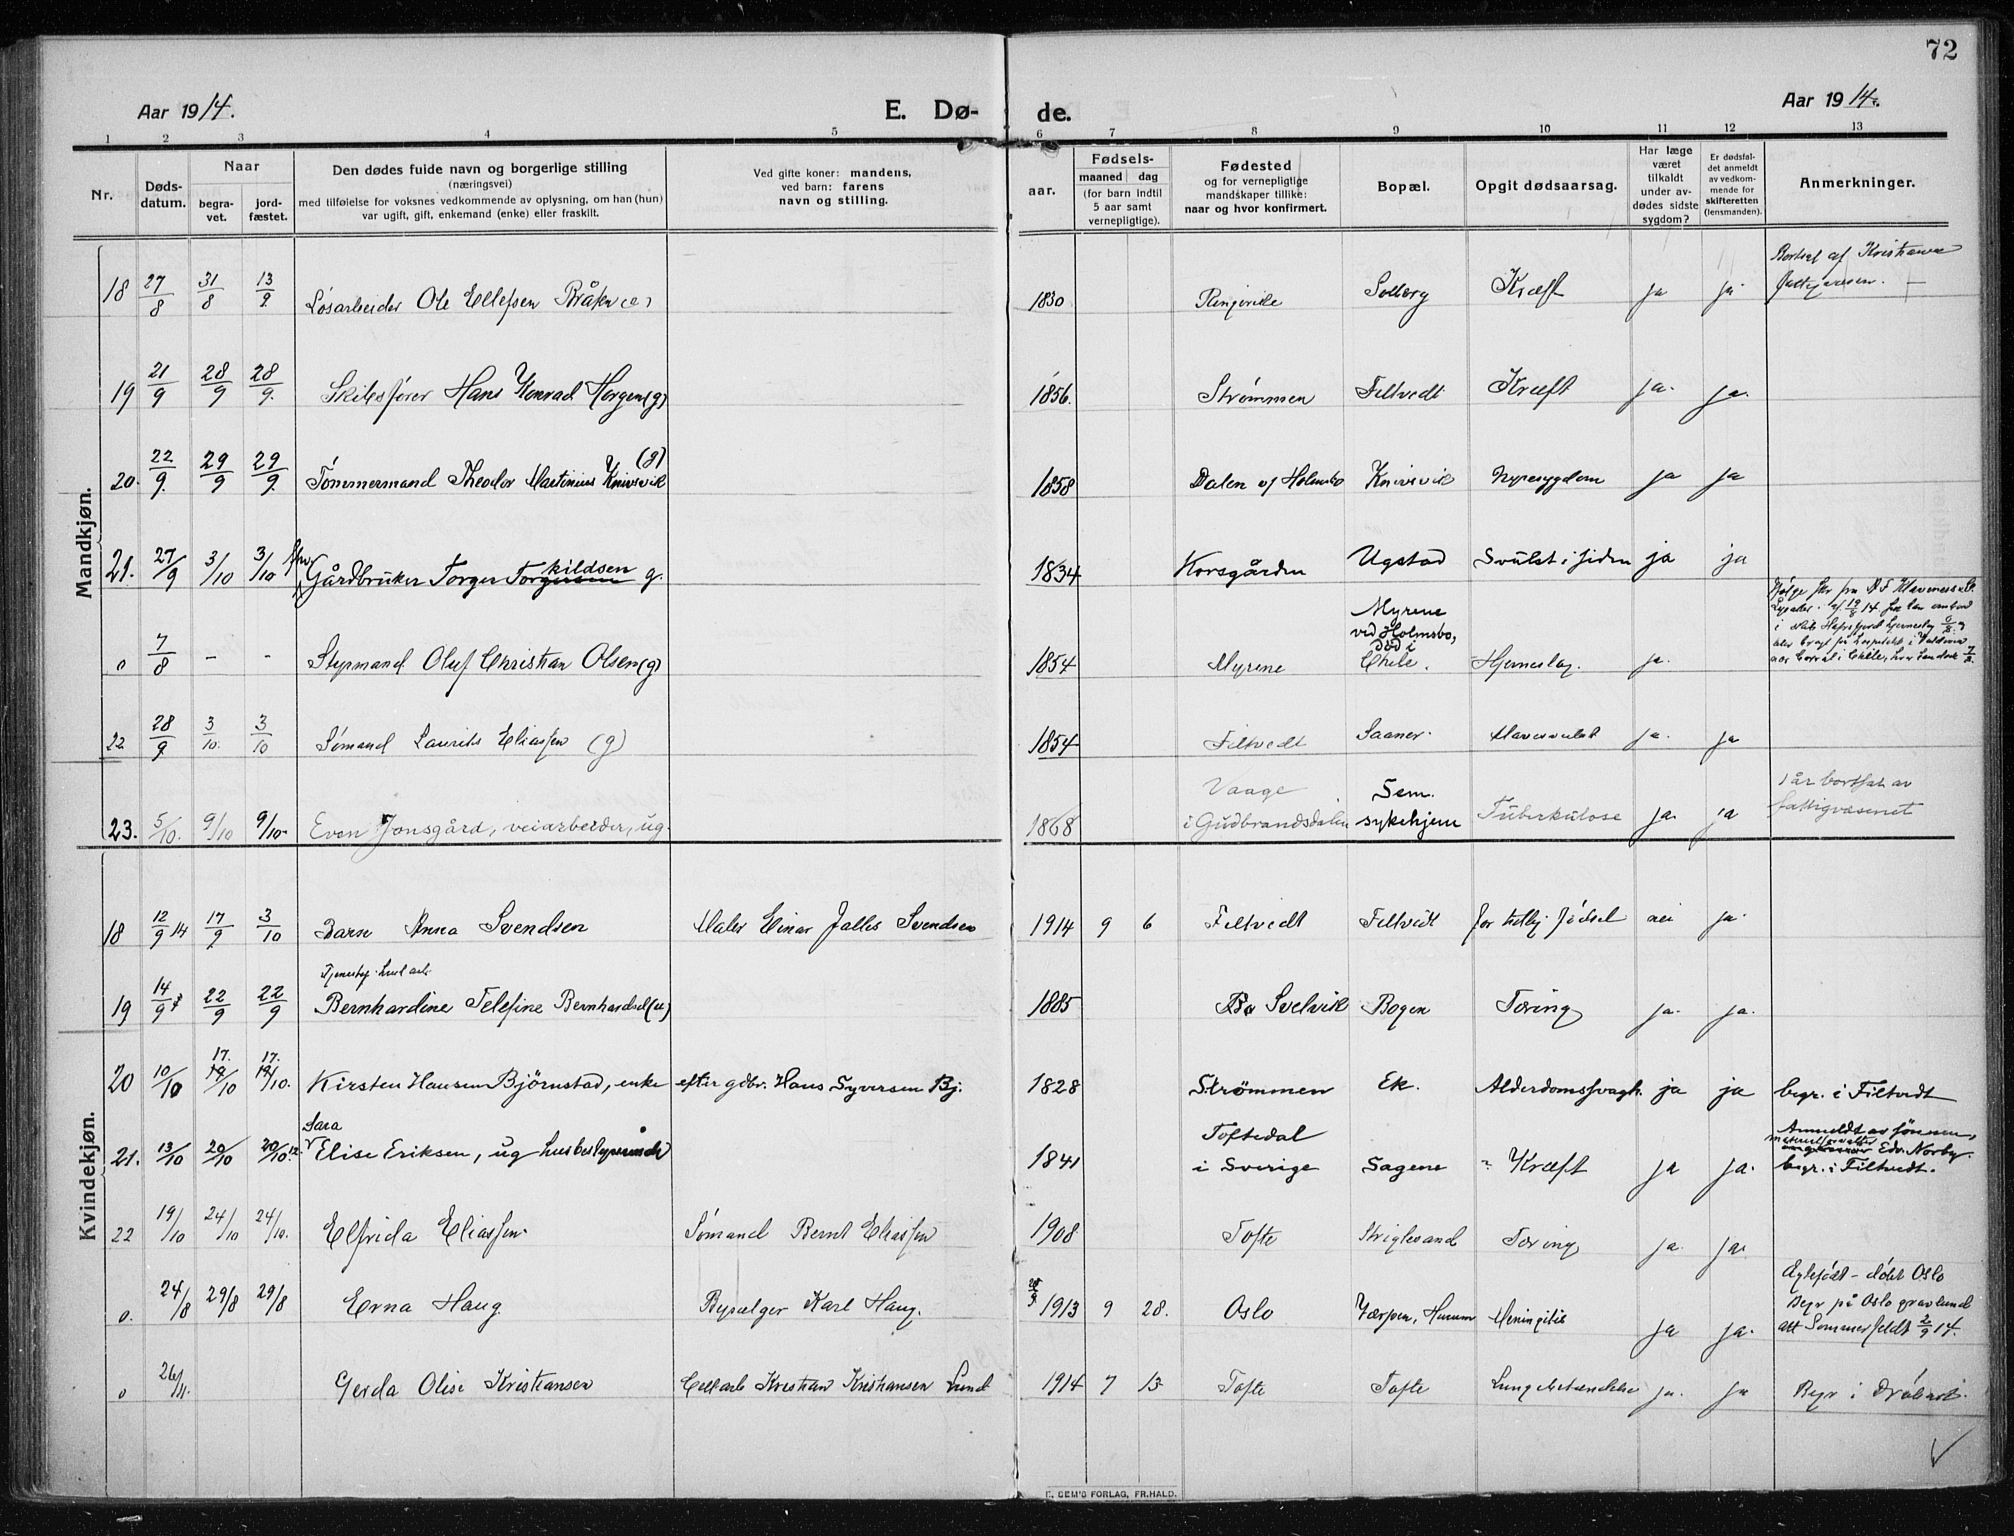 72
Aar 1914.
E. Dø-
de.
Aar 1914.
1 2 3 4 5 6 7 8 9 10 11 12 13
Nr.
Døds-
datum.
Naar
begra-
vet.
jord-
fæstet.
Den dødes fulde navn og borgerlige stilling
(næringsvei)
med tilføielse for voksnes vedkommende av oplysning, om han (hun)
var ugift, gift, enkemand (enke) eller fraskilt.
Ved gifte koner: mandens,
ved barn: farens
navn og stilling.
aar.
Fødsels-
maaned dag
(for barn indtil
5 aar samt
vernepligtige).
Fødested
og for vernepligtige
mandskaper tillike:
naar og hvor konfirmert.
Bopæl.
Opgit dødsaarsag.
Har læge
været
tilkaldt
under av-
dødes sidste
sygdom?
Er dødsfal-
det anmeldt
av vedkom-
mende for
skifteretten
(lensmanden).
Anmerkninger.
Mandkjøn.
18 27/8 31/8 13/9 Løsarbeider Ole Ellefsen Bråten (e) 1830 Ringerike Solberg Kræft ja ja. Bortsat af Kristiania
fattigvæsen.
19 21/9 28/9 28/9. Skibsfører Hans Konrad Horgen (g) 1856. Strømmen Filtvedt Kræft ja. ja.
20. 22/9. 29/9 29/9. Tømmermand Theodor Martinius Knivsvik (g) 1858 Dalen v/ Holmsbo Knivsvik Nyresygdom ja ja
21. 27/9 3/10 3/10 Gårdbruker Torger Torgersen kildsen g. 1834 Korsgården Ugstad Svulst i siden ja ja
0 7/8 - - Styrmand Oluf Christian Olsen (g) 1854 Myrene Myrene
ved Holmsbo,
död i
Chile. Hjerneslag. ja.
22 28/9 3/10. 3/10 Sømand Laurits Eliassen (g) 1854 Filtvedt Saaner. Mavesvulst ja. ja
23. 5/10. 9/10 9/10- Even Jonsgård, veiarbeider, ug. 1868 Vaage
i Gudbrandsdalen Sem.
sykehjem Tuberkulose ja. ja 1 år bortsat av
fattigvæsenet
Kvindekjøn.
18 12/9 14 17/9 3/10 Barn Anna Svendsen Maler Einar Jalles Svendsen 1914 9 6 Filtvedt Filtvedt for tidlig fødsel nei ja.
19 14/9 22/9 22/9 Bernhardine Telefine Bernhardsd (u) 1885 Bo Svelvik Bogen Tæring ja. ja.
20 10/10 17. 19/10 17. 19/10. Kirsten Hansen Bjørnstad, enke efter gdbr. Hans Syversen Bj. 1828 Strømmen Ek. Alderdomssvagh. ja ja begr. i Filtvedt
21. 13/10 20/10 20/10 12. Sara
Elise Eriksen, ug husbestyrerinde 1841 Toftedal
i Sverige Sagene Kræft ja ja. Anmeldt av sønnen,
materialforvalter Edv. Norby.
begr. i Filtvedt.
22 19/10 24/10 24/10. Elfrida Eliassen. Sømand Bernt Eliassen 1908 Tofte Striglesand Tæring ja. ja.
0. 24/8 29/8 29/8 Erna Haug Bysælger Karl Haug. 28/9 1913 9 28. Oslo Værpen, Hurum Meningitis ja ja. Ægtefødt - døbt Oslo
Begr på Oslo gravlund
att Sommerfeldt 2/9 14.
0 26/11. Gerda Olise Kristiansen Cellarb Kristian Kristiansen Lund 1914 7 13 Tofte Tofte Lungebetændelse ja. ja Begr i Drøbak.
E. SEM'S FORLAG, FR.HALD.